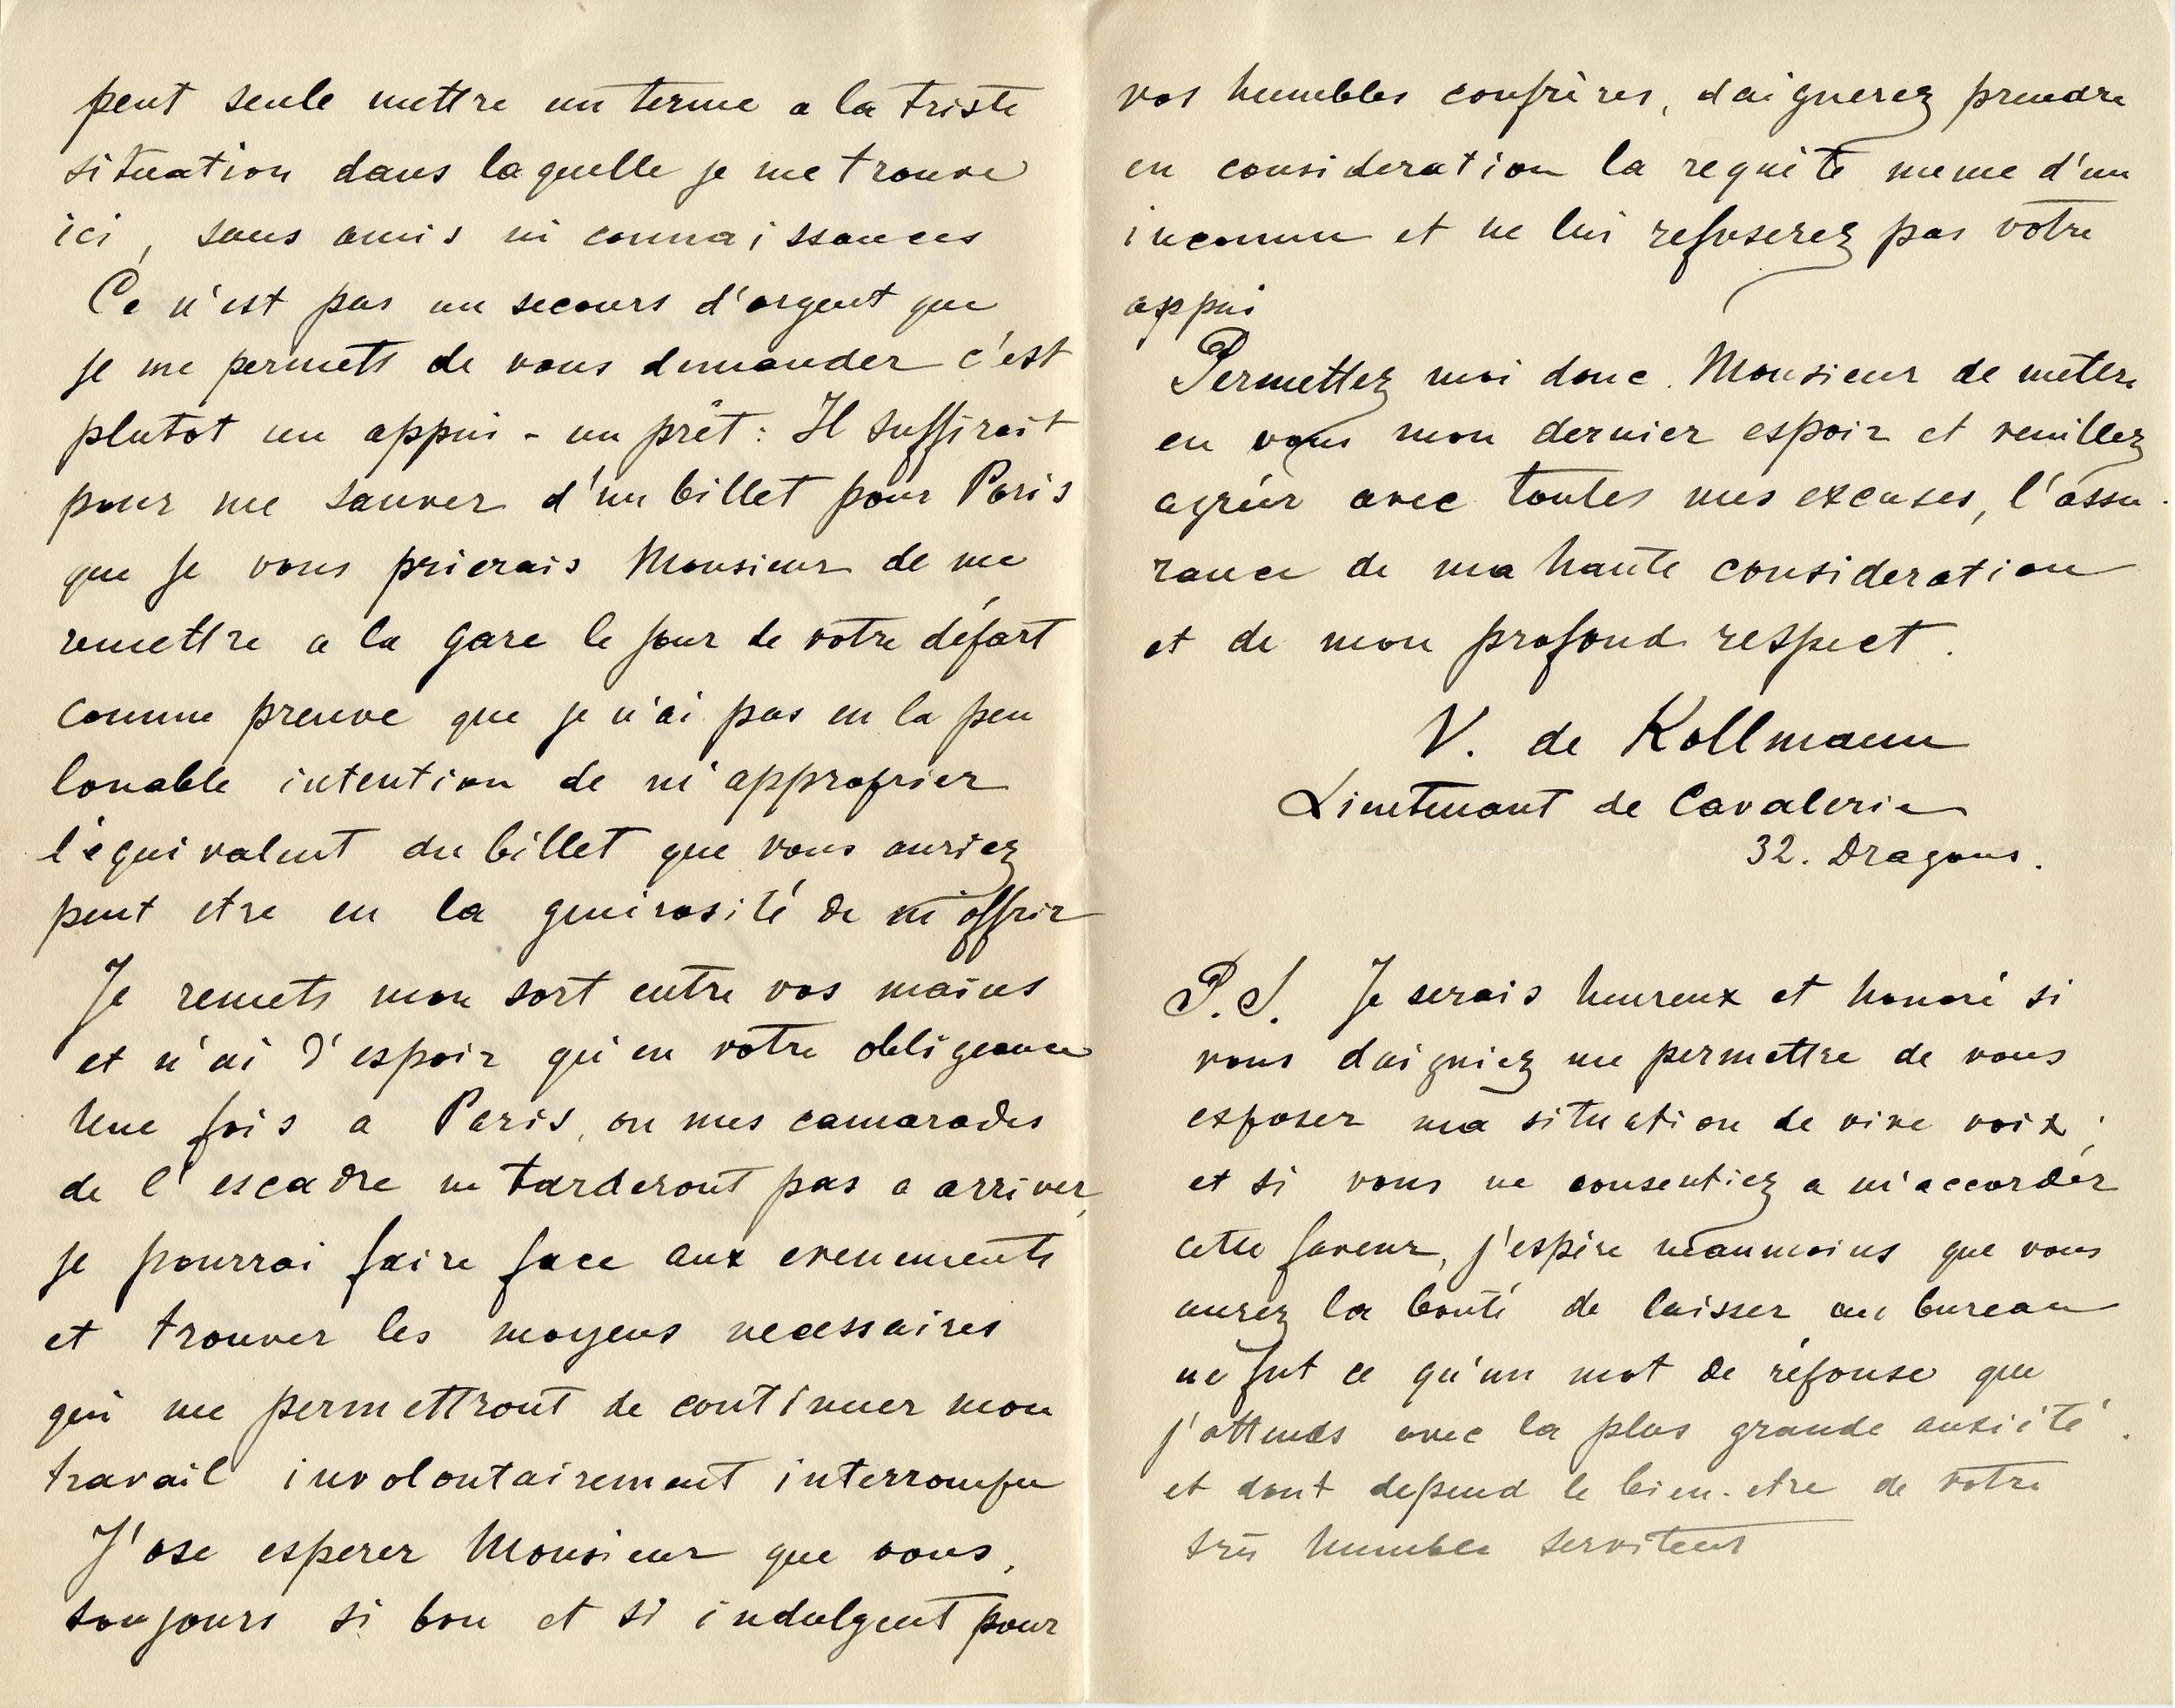 peut seule mettre un terme a la triste
situation dans laquelle je me trouve
ici, sans amis ni connaissances
Ce n'est pas un secours d'argent que
je me permets de vous demander c'est
plutot un appui - un prêt : Il suffirait
pour me sauver d'un billet pour Paris
que je vous prierais Monsieur de me
remettre a la gare le jour de votre départ
comme preuve que je n'ai pas eu la peu
louable intention de m'approprier
l'équivalent du billet que vous auriez
peut etre eu la génirosité de m'offrir
Je remets mon sort entre vos mains
et n'ai d'espoir qu'en votre obligeance
Une fois a Paris, ou mes camarades
de l'escadre ne tarderont pas a arriver,
je pourrai faire face aux evenements
et trouver les moyens necessaires
qui me permettront de continuer mon
travail involontairement interrompu
J'ose esperer Monsieur que vous,
toujours si bon et si indulgent pour
vos humbles confrères, daignerez prendre
en consideration la requête meme d'un
inconnu et ne lui refuserez pas votre
appui
Permettez moi donc. Monsieur de metre
en vous mon dernier espoir et veuillez
agréer avec toutes mes excuses, l'assu-
rance de ma haute consideration
et de mon profond respect.
V. de Kollmann
Lieutenant de Cavalerie
32. Dragons.
P.S. Je serais heureux et honoré si
vous daigniez me permettre de vous
exposer ma situation de vive voix;
et si vous ne consentiez a m'accorder
cette faveur, j'espère néanmoins que vous
aurez la bonté de laisser au bureau
ne fut ce qu'un mot de réponse que
j'attends avec la plus grande anxiété.
et dont depend le bien-etre de votre
très humble serviteur